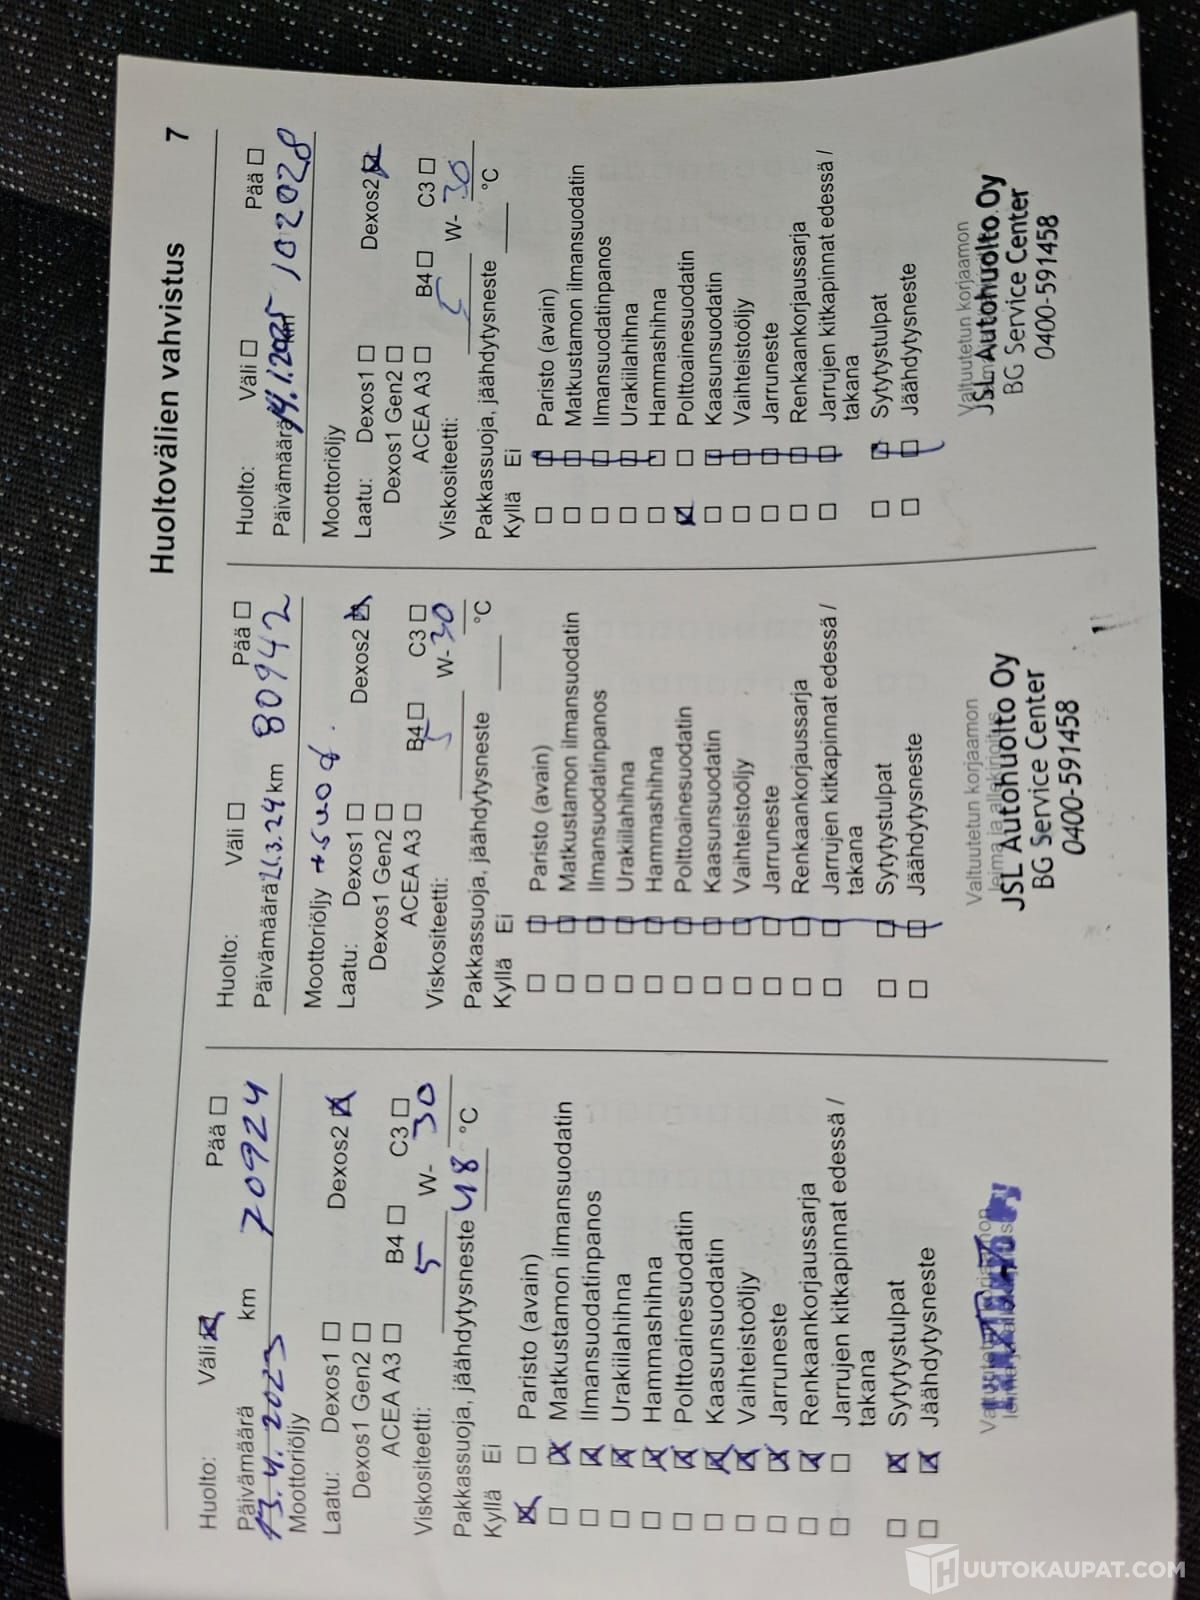 Huoltovälien vahvistus 7
Huolto: Väli ☒ Pää ☐
Päivämäärä km
13.4.2023 70924
Moottoriöljy
Laatu: Dexos1 ☐ Dexos2 ☒
Dexos1 Gen2 ☐
ACEA A3 ☐ B4 ☐ C3 ☐
Viskositeetti: 5 W- 30
Pakkassuoja, jäähdytysneste 48 °C
Kyllä Ei
☒ ☐ Paristo (avain)
☐ ☒ Matkustamon ilmansuodatin
☐ ☒ Ilmansuodatinpanos
☐ ☒ Urakiilahihna
☐ ☒ Hammashihna
☐ ☒ Polttoainesuodatin
☐ ☒ Kaasunsuodatin
☐ ☒ Vaihteistoöljy
☐ ☒ Jarruneste
☐ ☒ Renkaankorjaussarja
☐ ☐ Jarrujen kitkapinnat edessä /
takana
☐ ☒ Sytytystulpat
☐ ☒ Jäähdytysneste
Huolto: Väli ☐ Pää ☐
Päivämäärä km 80942
Moottoriöljy + suod.
Laatu: Dexos1 ☐ Dexos2 ☒
Dexos1 Gen2 ☐
ACEA A3 ☐ B4 ☐ C3 ☐
Viskositeetti: 5 W- 30
Pakkassuoja, jäähdytysneste °C
Kyllä Ei
☐ ☐ Paristo (avain)
☐ ☐ Matkustamon ilmansuodatin
☐ ☐ Ilmansuodatinpanos
☐ ☐ Urakiilahihna
☐ ☐ Hammashihna
☐ ☐ Polttoainesuodatin
☐ ☐ Kaasunsuodatin
☐ ☐ Vaihteistoöljy
☐ ☐ Jarruneste
☐ ☐ Renkaankorjaussarja
☐ ☐ Jarrujen kitkapinnat edessä /
takana
☐ ☐ Sytytystulpat
☐ ☐ Jäähdytysneste
Valtuutetun korjaamon
leima ja allekirjoitus
JSL Autohuolto Oy
BG Service Center
0400-591458
Huolto: Väli ☐ Pää ☐
Päivämäärä 14.1.2025 km 102028
Moottoriöljy
Laatu: Dexos1 ☐ Dexos2 ☒
Dexos1 Gen2 ☐
ACEA A3 ☐ B4 ☐ C3 ☐
Viskositeetti: 5 W- 30
Pakkassuoja, jäähdytysneste °C
Kyllä Ei
☐ ☐ Paristo (avain)
☐ ☐ Matkustamon ilmansuodatin
☐ ☐ Ilmansuodatinpanos
☐ ☐ Urakiilahihna
☐ ☐ Hammashihna
☒ ☐ Polttoainesuodatin
☐ ☐ Kaasunsuodatin
☐ ☐ Vaihteistoöljy
☐ ☐ Jarruneste
☐ ☐ Renkaankorjaussarja
☐ ☐ Jarrujen kitkapinnat edessä /
takana
☐ ☐ Sytytystulpat
☐ ☐ Jäähdytysneste
Valtuutetun korjaamon
JSL Autohuolto Oy
BG Service Center
0400-591458
HUUTOKAUPAT.COM